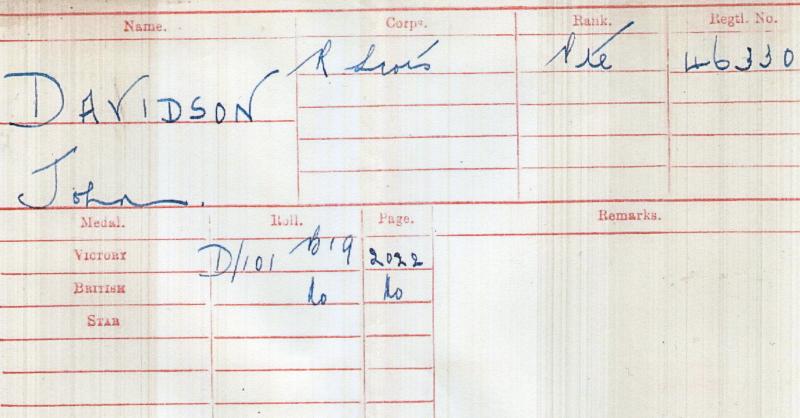 Name. Corps. Rank. Regtl. No.
DAVIDSON R Scots Pte 46330
John.
Medal. Roll. Page. Remarks.
VICTORY D/101 B19 2022
BRITISH do do
STAR